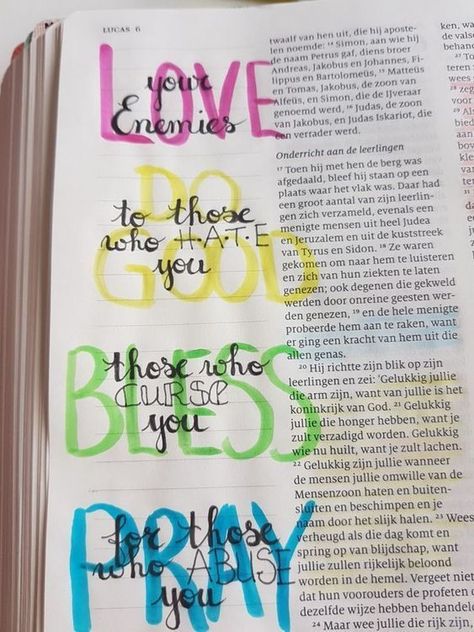 LUCAS 6
LOVE
your
Enemies
DO
to those
who H·A·T·E
GOOD
you
those who
BLESS
CURSE
you
for those
PRAY
who ABUSE
you
twaalf van hen uit, die hij aposte-
len noemde: 14 Simon, aan wie hij
de naam Petrus gaf, diens broer
Andreas, Jakobus en Johannes, Fi-
lippus en Bartolomeüs, 15 Matteüs
en Tomas, Jakobus, de zoon van
Alfeüs, en Simon, die de IJveraar
genoemd werd, 16 Judas, de zoon
van Jakobus, en Judas Iskariot, die
een verrader werd.
Onderricht aan de leerlingen
17 Toen hij met hen de berg was
afgedaald, bleef hij staan op een
plaats waar het vlak was. Daar had
een groot aantal van zijn leerlin-
gen zich verzameld, evenals een
menigte mensen uit heel Judea
en Jeruzalem en uit de kuststreek
van Tyrus en Sidon. 18 Ze waren
gekomen om naar hem te luisteren
en zich van hun ziekten te laten
genezen; ook degenen die gekweld
werden door onreine geesten wer-
den genezen, 19 en de hele menigte
probeerde hem aan te raken, want
er ging een kracht van hem uit die
allen genas.
20 Hij richtte zijn blik op zijn
leerlingen en zei: 'Gelukkig jullie
die arm zijn, want van jullie is het
koninkrijk van God. 21 Gelukkig
jullie die honger hebben, want je
zult verzadigd worden. Gelukkig
wie nu huilt, want je zult lachen.
22 Gelukkig zijn jullie wanneer
de mensen jullie omwille van de
Mensenzoon haten en buiten-
sluiten en beschimpen en je
naam door het slijk halen. 23 Wees
verheugd als die dag komt en
spring op van blijdschap, want
jullie zullen rijkelijk beloond
worden in de hemel. Vergeet niet
dat hun voorouders de profeten
dezelfde wijze hebben behandel
24 Maar wee jullie die rijk zijn,